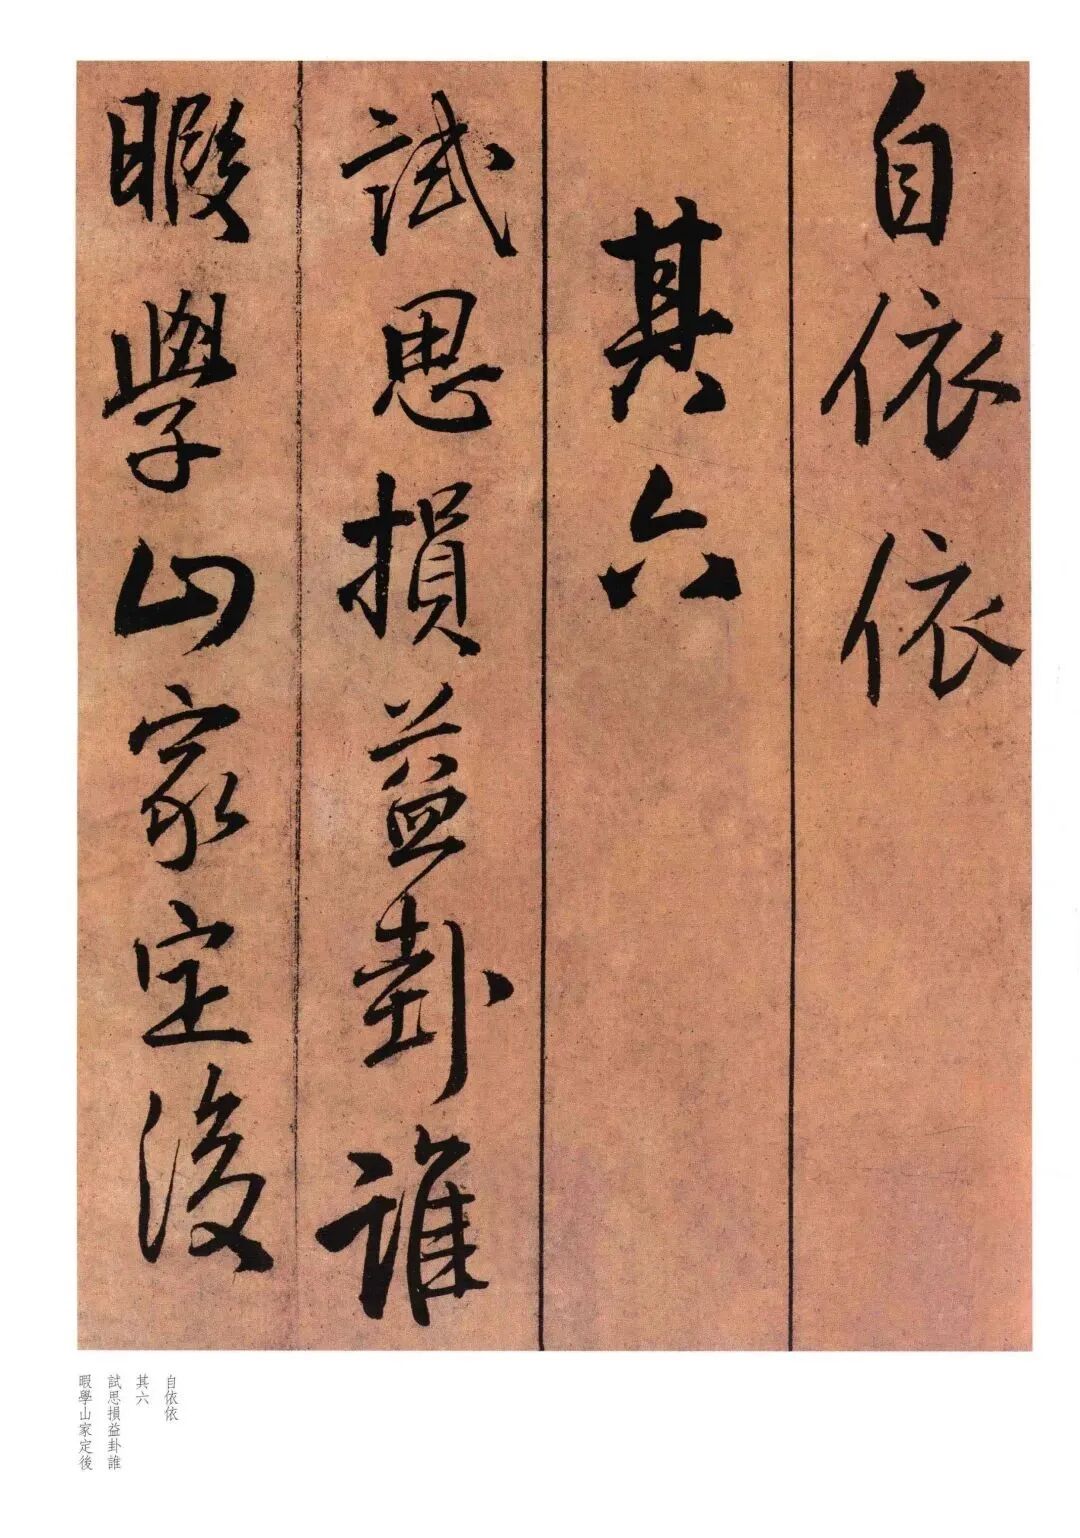 自依依
其六
試思損益卦誰
暇學山家定後
自依依
其六
試思損益卦誰
暇學山家定後